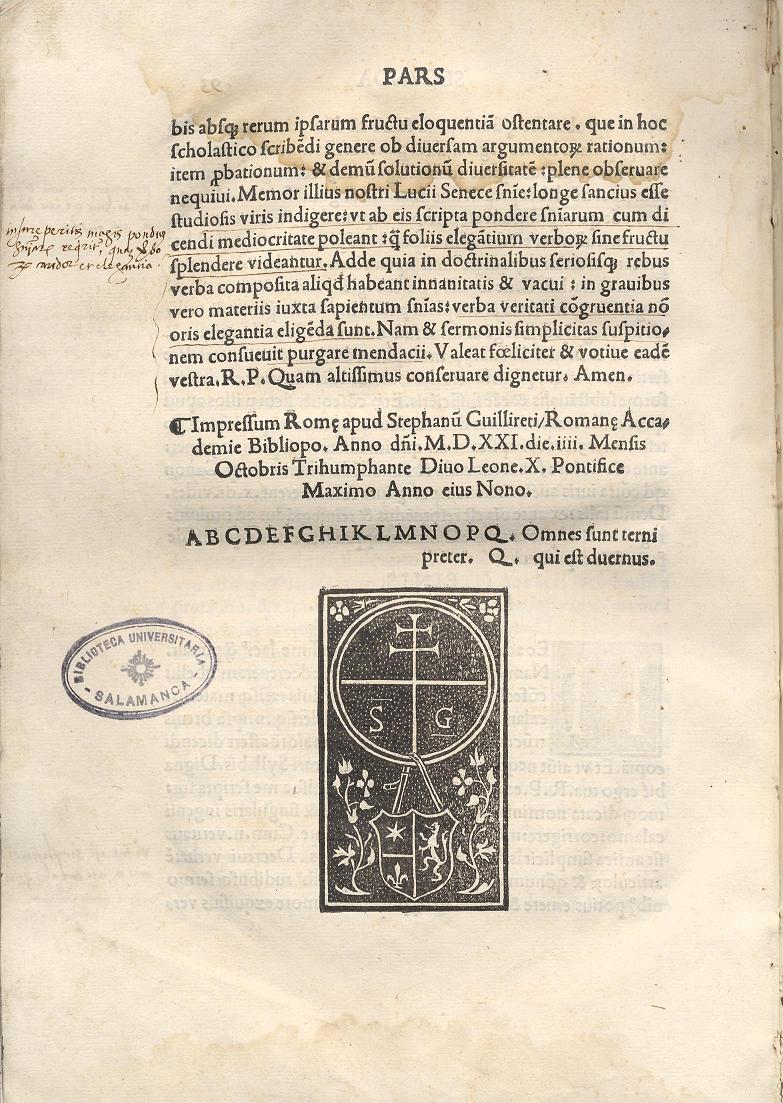 PARS
bis absq; rerum ipsarum fructu eloquentiã ostentare. que in hoc
scholastico scribẽdi genere ob diuersam argumentoꝝ rationum:
item ꝓbationum: & demũ solutionũ diuersitatẽ: plene obseruare
nequiui. Memor illius nostri Lucii Senece sñie: longe sancius esse
studiosis viris indigere: vt ab eis scripta pondere sñiarum cum di
cendi mediocritate poleant: q̃ foliis elegãtium verboꝝ sine fructu
splendere videantur. Adde quia in doctrinalibus seriosisq; rebus
verba composita aliqd habeant innanitatis & vacui: in grauibus
vero materiis iuxta sapientum sñias: verba veritati cõgruentia nõ
oris elegantia eligẽda sunt. Nam & sermonis simplicitas suspitio,
nem consueuit purgare mendacii. Valeat fœliciter & votiue eadẽ
vestra. R. P. Quam altissimus conseruare dignetur. Amen.
¶ Impressum Romę apud Stephanũ Guillireti/Romanę Acca,
demie Bibliopo. Anno dñi. M. D. XXI. die. iiii. Mensis
Octobris Trihumphante Diuo Leone. X. Pontifice
Maximo Anno eius Nono.
A B C D E F G H I K L M N O P Q. Omnes sunt terni
preter. Q. qui est duernus.
BIBLIOTECA UNIVERSITARIA
- SALAMANCA -
S G